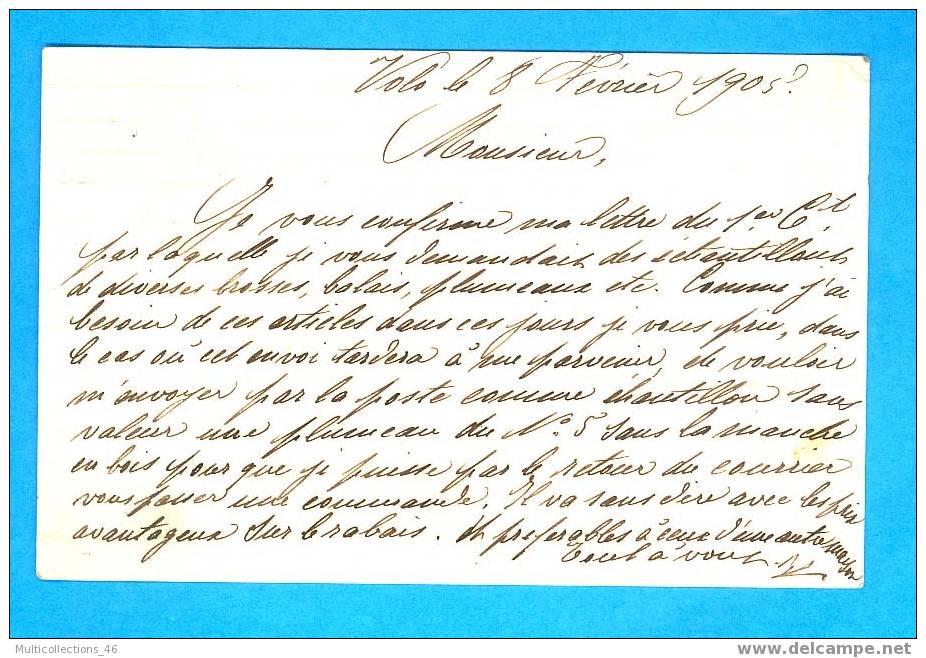 Volo le 8 Février 1905
Monsieur,
Je vous confirme ma lettre du 1er Ct
par laquelle je vous demandais des échantillons
de diverses brosses, balais, plumeaux etc. Comme j'ai
besoin de ces articles dans ces jours je vous prie, dans
le cas où cet envoi tardera à me parvenir, de vouloir
m'envoyer par la poste comme échantillon sans
valeur une plumeau du No 5 sans la manche
en bois pour que je puisse par le retour du courrier
vous passer une commande. Il va sans dire avec les prix
avantageux sur le rabais. et preferables à ceux d'une autre maison
Tout à vous
Multicollections_46
www.delcampe.net